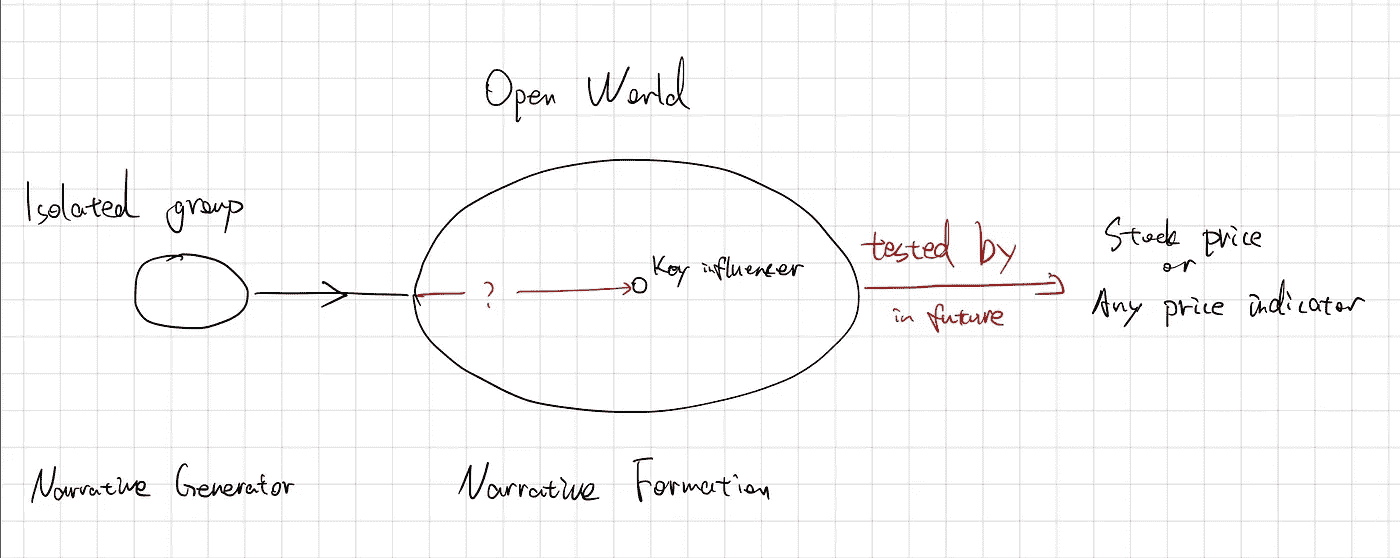 Open World
Isolated group
Key influencer
?
tested by
in future
Stock price
or
Any price indicator
Narrative Generator
Narrative Formation